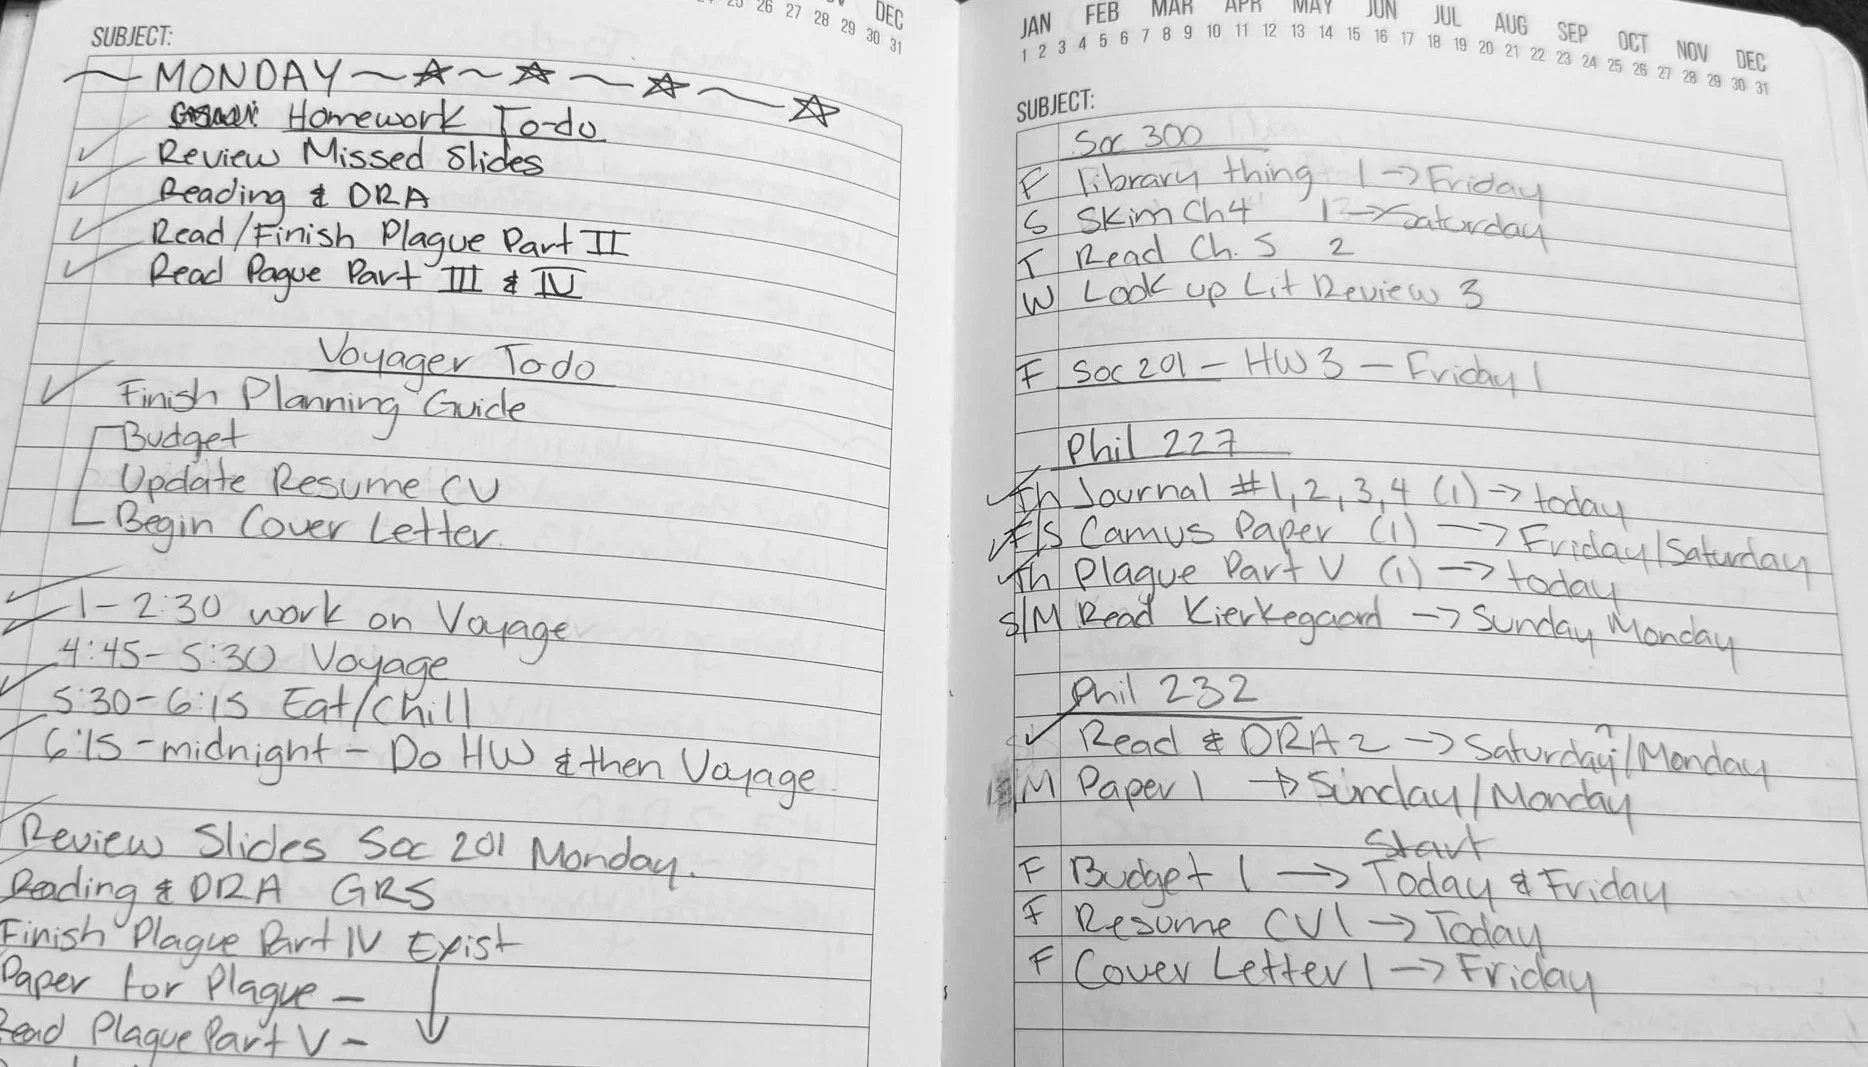 25 26 27 28 29 30 31
DEC
SUBJECT:
MONDAY
Homework To-do
Review Missed Slides
Reading & DRA
Read/Finish Plague Part II
Read Pague Part III & IV
Voyager To do
Finish Planning Guide
Budget
Update Resume CV
Begin Cover Letter.
1-2:30 work on Voyage
4:45-5:30 Voyage
5:30-6:15 Eat/Chill
6:15-midnight - Do HW & then Voyage.
Review Slides Soc 201 Monday.
Reading & DRA GRS
Finish Plague Part IV Exist
Paper for Plague -
Read Plague Part V -
JAN FEB MAR APR MAY JUN JUL AUG SEP OCT NOV DEC
1 2 3 4 5 6 7 8 9 10 11 12 13 14 15 16 17 18 19 20 21 22 23 24 25 26 27 28 29 30 31
SUBJECT:
Soc 300
F Library thing 1 -> Friday
S Skim Ch 4 Saturday
T Read Ch. 5 2
W Look up Lit Review 3
F Soc 201 - HW 3 - Friday 1
Phil 227
Th Journal #1, 2, 3, 4 (1) -> today
F/S Camus Paper (1) -> Friday/Saturday
Th Plague Part V (1) -> today
S/M Read Kierkegaard -> Sunday Monday
Phil 232
Read & DRA 2 -> Saturday?/Monday
M Paper 1 -> Sunday/Monday
Start
F Budget 1 -> Today & Friday
F Resume CV 1 -> Today
F Cover Letter 1 -> Friday